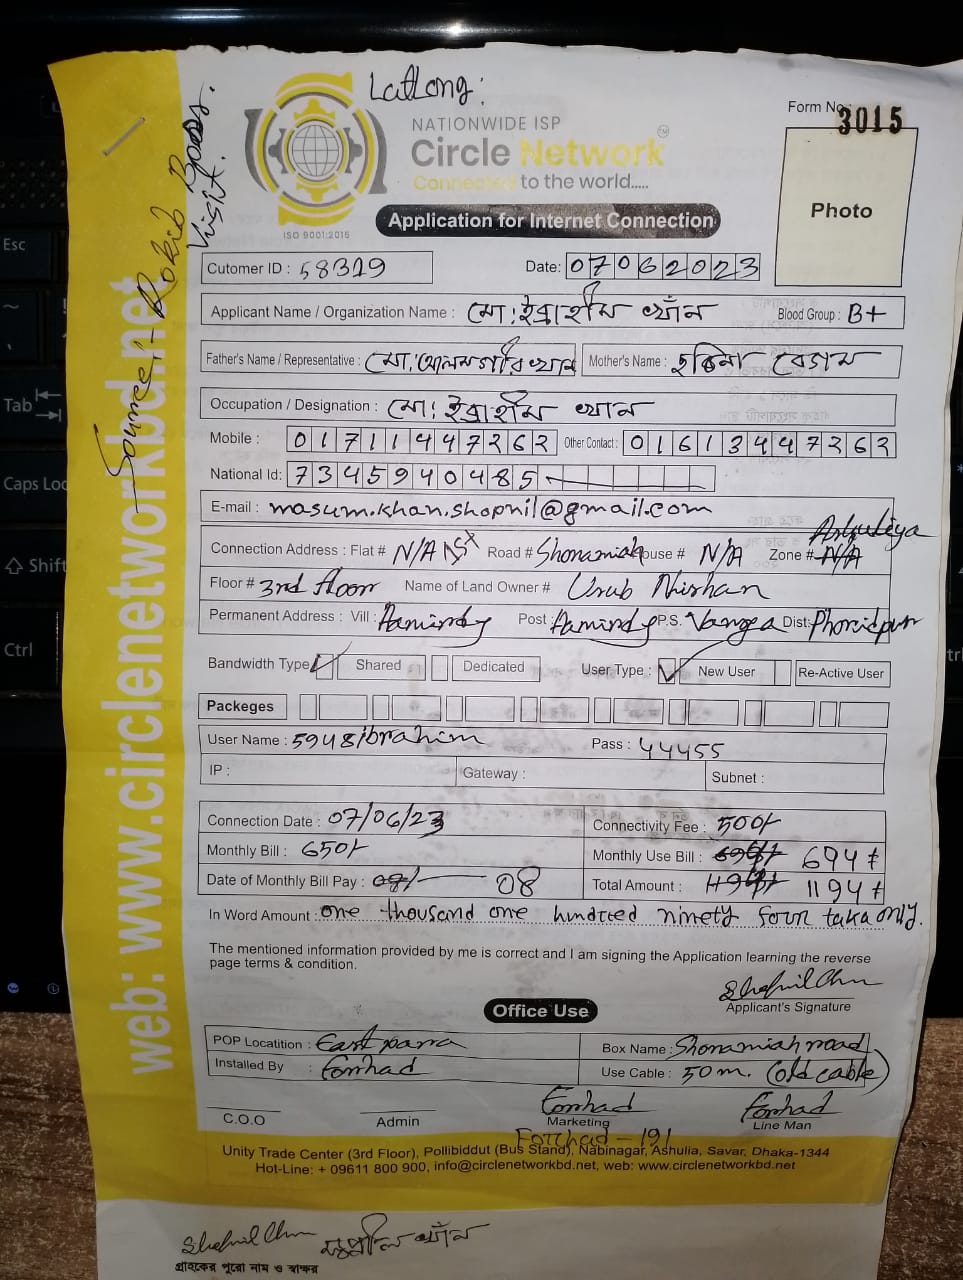 LatLong:
Form No. 3015
NATIONWIDE ISP
Circle Network
TM
Connected to the world.....
ISO 9001:2015
Photo
Application for Internet Connection
Source:- Rokib Boss. Visit.
web: www.circlenetworkbd.net
Cutomer ID : 58319 Date: 07062023
Applicant Name / Organization Name : মো: ইব্রাহীম খাঁন Blood Group : B+
Father's Name / Representative : মো: আলমগীর খান Mother's Name : ছবিনা বেগম
Occupation / Designation : মো: ইব্রাহীম খান
Mobile : 01711447262 Other Contact : 01613447262
National Id: 7345940485
E-mail : masum.khan.shopnil@gmail.com
Connection Address : Flat # N/A Road # Shonamiah House # N/A Zone # N/A Ashuliya
Floor # 3rd floor Name of Land Owner # Urub Nishan
Permanent Address : Vill : Hamirdy Post : Hamirdy P.S. Vangga Dist: Phoridpur
Bandwidth Type Shared Dedicated User Type : New User Re-Active User
Packeges
User Name : 5948ibrahim Pass : 44455
IP : Gateway : Subnet :
Connection Date : 07/06/23 Connectivity Fee : 500/-
Monthly Bill : 650/- Monthly Use Bill : 694 ৳
Date of Monthly Bill Pay : 08 Total Amount : 1194 ৳
In Word Amount : one thousand one hundred ninety four taka only.
The mentioned information provided by me is correct and I am signing the Application learning the reverse
page terms & condition.
Applicant's Signature
Office Use
POP Locatition : East para Box Name : Shonamiah road
Installed By : Forhad Use Cable : 50 m. (old cable)
Forhad Forhad
C.O.O Admin Marketing Line Man
Forhad - 191
Unity Trade Center (3rd Floor), Pollibiddut (Bus Stand), Nabinagar, Ashulia, Savar, Dhaka-1344
Hot-Line: + 09611 800 900, info@circlenetworkbd.net, web: www.circlenetworkbd.net
গ্রাহকের পুরো নাম ও স্বাক্ষর
Esc
Tab
Caps Loc
Shift
Ctrl